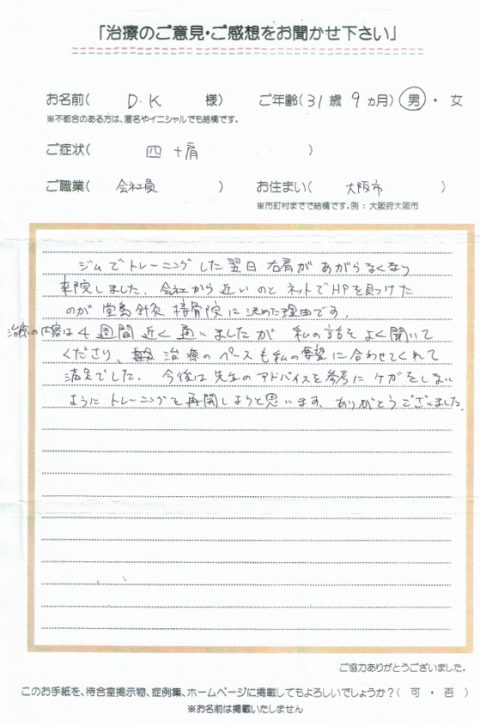 「治療のご意見・ご感想をお聞かせ下さい」
お名前( D.K 様) ご年齢(31歳 9ヵ月) 男・女
※不都合のある方は、匿名やイニシャルでも結構です。
ご症状( 四十肩 )
ご職業( 会社員 ) お住まい( 大阪市 )
※市町村までで結構です。例：大阪府大阪市
ジムでトレーニングした翌日 右肩があがらなくなり
来院しました。会社から近いのと ネットでHPを見つけた
のが 堂島針灸接骨院に決めた理由です。
治療の内容は4週間近く通いましたが 私の話をよく聞いて
くださり、治療のペースも私の希望に合わせてくれて
満足でした。今後は先生のアドバイスを参考に ケガをしない
ように トレーニングを再開しようと思います。ありがとうございました。
ご協力ありがとうございました。
このお手紙を、待合室掲示物、症例集、ホームページに掲載してもよろしいでしょうか？( 可 ・ 否 )
※お名前は掲載いたしません